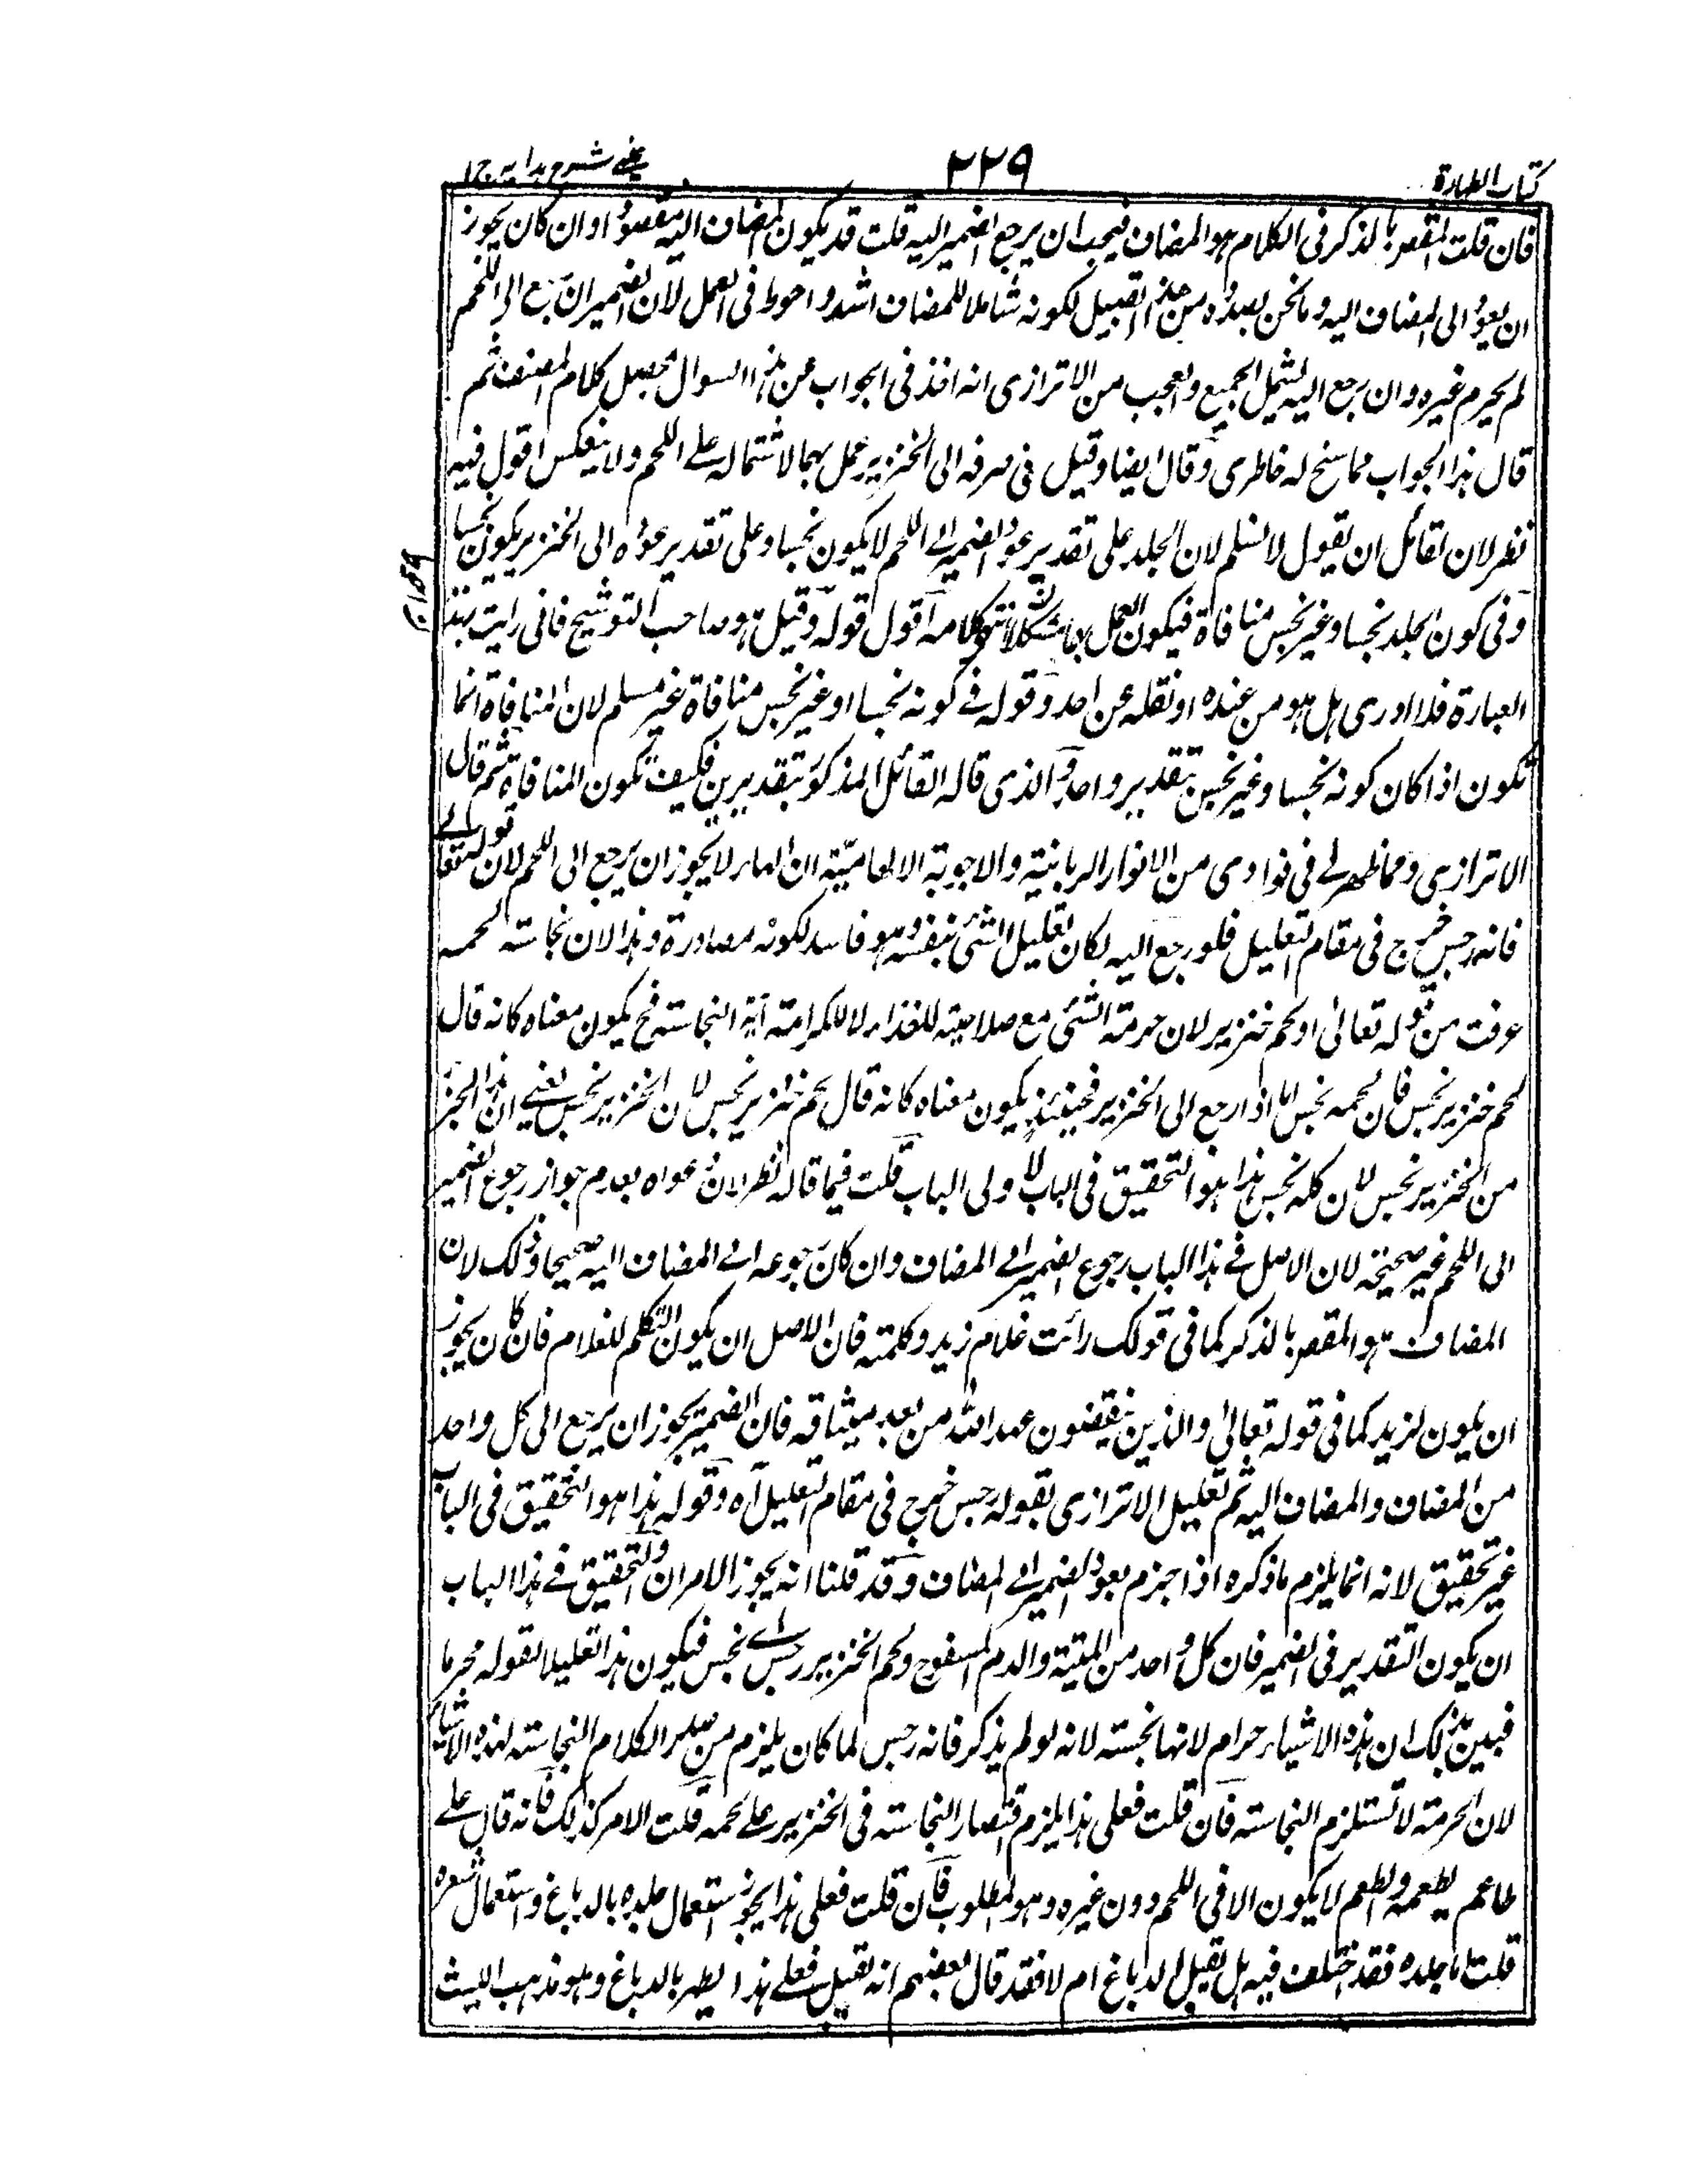 كتاب الطهارة
٢٢٩
عينى شرح هدايه ج١
فان قلت المقصود بالذكر فى الكلام هو المضاف فيجب ان يرجع الضمير اليه قلت قد يكون المضاف اليه مقصودا وان كان يجوز
ان يعود الى المضاف اليه وما نحن بصدده من هذا القبيل لكونه شاملا للمضاف اشد واحوط فى العمل لان الضمير ان رجع الى اللحم
لم يحرم غيره وان رجع اليه يشمل الجميع والعجب من الاترازى انه اخذ فى الجواب عن هذا السوال محصل كلام المصنف ثم
قال هذا الجواب مما سنح له خاطرى وقال ايضا وقيل فى صرفه الى الخنزير عمل بهما لاشتماله على اللحم ولا ينعكس اقول فيه
نظر لان لقائل ان يقول لا نسلم لان الجلد على تقدير عود الضمير الى اللحم لا يكون نجسا وعلى تقدير عوده الى الخنزير يكون نجسا
وفى كون الجلد نجسا وغير نجس منافاة فيكون العمل بهما مشكلا انتهى كلامه اقول قوله وقيل هو صاحب التوشيح فانى رايت هذه
العبارة فلا ادرى هل هو من عنده او نقله عن احد وقوله فى كونه نجسا او غير نجس منافاة غير مسلم لان المنافاة انما
تكون اذا كان كونه نجسا وغير نجس بتقدير واحد والذى قاله القائل المذكور بتقديرين فكيف تكون المنافاة ثم قال
الاترازى ومما ظهر لى فى فوادى من الانوار الربانية والاجوبة الالهامية ان الهاء لا يجوز ان يرجع الى اللحم لان قوله تعالى
فانه رجس خرج فى مقام التعليل فلو رجع اليه لكان تعليل الشئ بنفسه وهو فاسد لكونه مصادرة وهذا لان نجاسته لحمه
عرفت من قوله تعالى او لحم خنزير لان حرمة الشئ مع صلاحيته للغذاء لا للكرامة آية النجاسة فح يكون معناه كانه قال
لحم خنزير نجس فان لحمه نجس اما اذا رجع الى الخنزير فحينئذ يكون معناه كانه قال لحم خنزير نجس لان الخنزير نجس يعنى ان هذا الجزء
من الخنزير نجس لان كله نجس هذا هو التحقيق فى الباب لاولى الباب قلت فيما قاله نظر لان دعواه بعدم جواز رجوع الضمير
الى اللحم غير صحيحة لان الاصل فى هذا الباب رجوع الضمير الى المضاف وان كان رجوعه الى المضاف اليه صحيحا وذلك لان
المضاف هو المقصود بالذكر كما فى قولك رائت غلام زيد وكلمته فان الاصل ان يكون التكلم للغلام فان كان يجوز
ان يكون لزيد كما فى قوله تعالى والذين ينقضون عهد الله من بعد ميثاقه فان الضمير يجوز ان يرجع الى كل واحد
من المضاف والمضاف اليه ثم تعليل الاترازى بقوله رجس خرج فى مقام التعليل آه وقوله هذا هو التحقيق فى الباب
غير تحقيق لانه انما يلزم ما ذكره اذا جزم بعود الضمير الى المضاف وقد قلنا انه يجوز الامران والتحقيق فى هذا الباب
ان يكون التقدير فى الضمير فان كل واحد من الميتة والدم المسفوح ولحم الخنزير رجس اى نجس فيكون هذا تعليلا لقوله محرما
فبين بذلك ان هذه الاشياء حرام لانها نجسة لانه لو لم يذكر فانه رجس لما كان يلزم من صدر الكلام النجاسة لهذه الاشياء
لان الحرمة لا تستلزم النجاسة فان قلت فعلى هذا يلزم اقتصار النجاسة فى الخنزير على لحمه قلت الامر كذلك فانه قال على
طاعم يطعمه والطعم لا يكون الا فى اللحم دون غيره وهو المطلوب فان قلت فعلى هذا يجوز استعمال جلده بالدباغ واستعمال شعره
قلت اما جلده فقد اختلف فيه هل يقبل الدباغ ام لا فقد قال بعضهم انه يقبل فعلى هذا يطهر بالدباغ وهو مذهب الليث